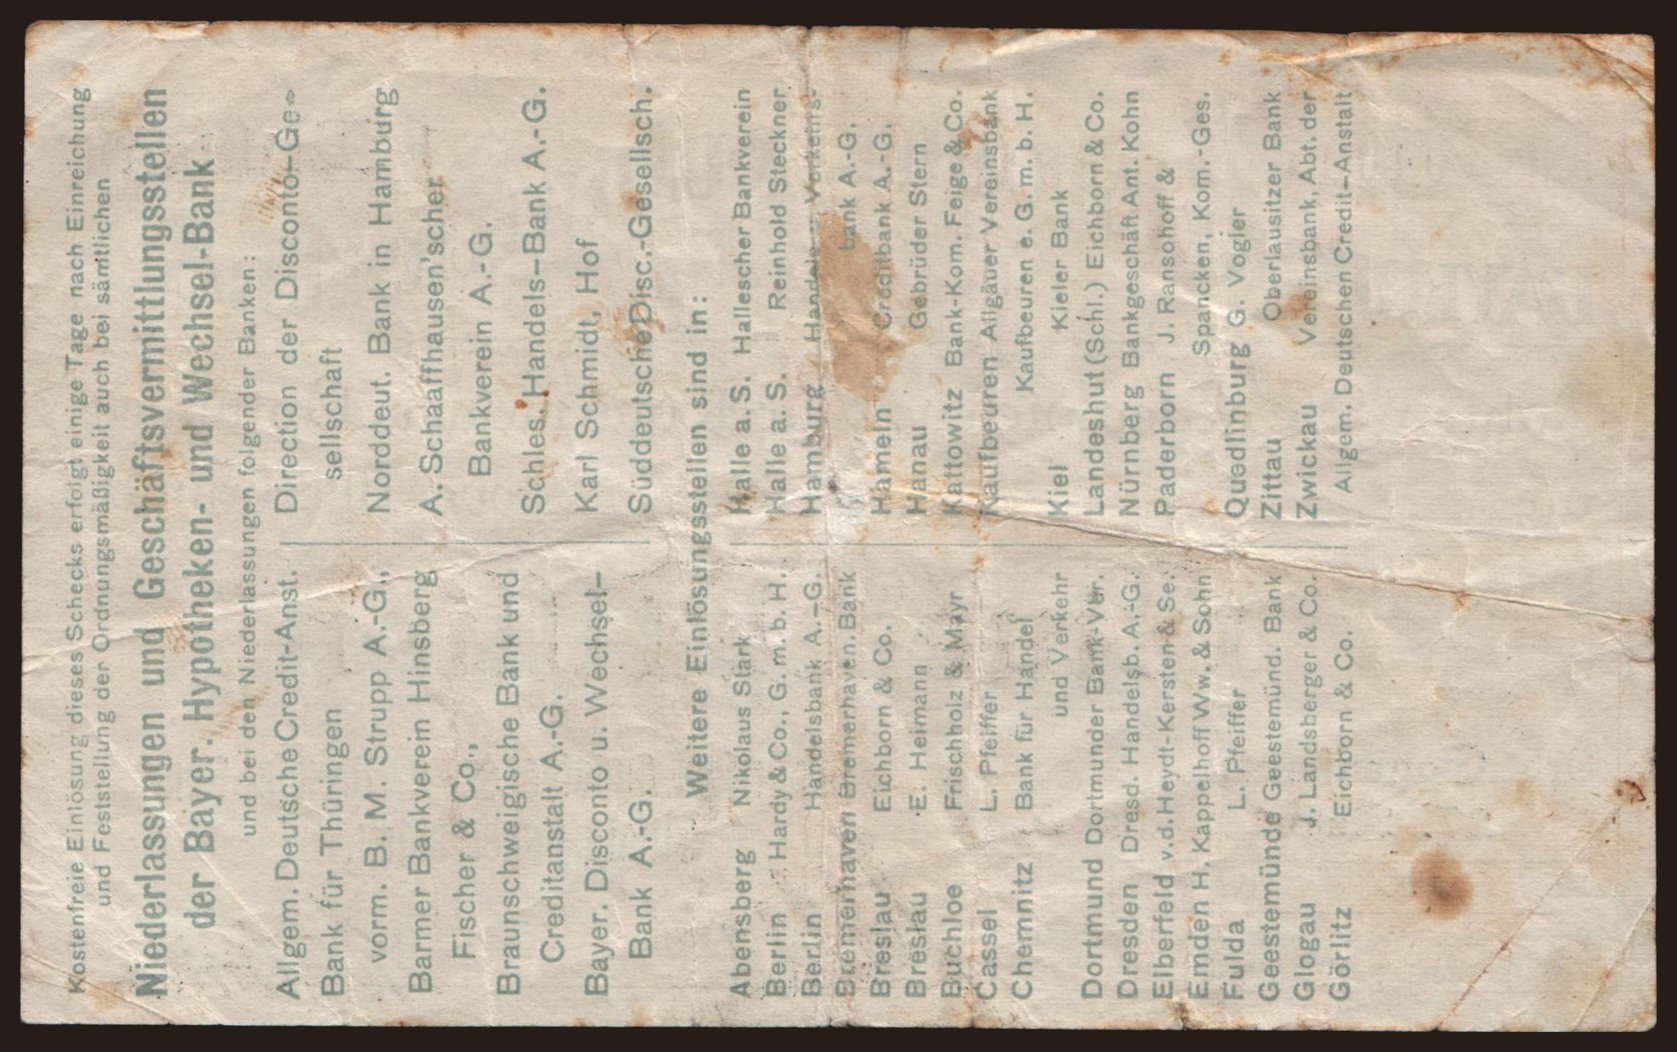 Kostenfreie Einlösung dieses Schecks erfolgt einige Tage nach Einreichung
und Feststellung der Ordnungsmäßigkeit auch bei sämtlichen
Niederlassungen und Geschäftsvermittlungsstellen
der Bayer. Hypotheken- und Wechsel-Bank
und bei den Niederlassungen folgender Banken:
Allgem. Deutsche Credit-Anst.
Bank für Thüringen
vorm. B. M. Strupp A.-G.,
Barmer Bankverein Hinsberg
Fischer & Co.,
Braunschweigische Bank und
Creditanstalt A.-G.
Bayer. Disconto u. Wechsel-
Bank A.-G.
Direction der Disconto-Ge-
sellschaft
Norddeut. Bank in Hamburg
A. Schaaffhausen'scher
Bankverein A.-G.
Schles. Handels-Bank A.-G.
Karl Schmidt, Hof
Süddeutsche Disc.-Gesellsch.
Weitere Einlösungsstellen sind in:
Abensberg Nikolaus Stark
Berlin Hardy & Co., G. m. b. H.
Berlin Handelsbank A.-G.
Bremerhaven Bremerhaven. Bank
Breslau Eichborn & Co.
Breslau E. Heimann
Buchloe Frischholz & Mayr
Cassel L. Pfeiffer
Chemnitz Bank für Handel
und Verkehr
Dortmund Dortmunder Bank-Ver.
Dresden Dresd. Handelsb. A.-G.
Elberfeld v. d. Heydt-Kersten & Se.
Emden H. Kappelhoff Ww. & Sohn
Fulda L. Pfeiffer
Geestemünde Geestemünd. Bank
Glogau J. Landsberger & Co.
Görlitz Eichborn & Co.
Halle a. S. Hallescher Bankverein
Halle a. S. Reinhold Steckner
Hamburg Handels- u. Verkehrs-
bank A.-G.
Hameln Creditbank A.-G.
Hanau Gebrüder Stern
Kattowitz Bank-Kom. Feige & Co.
Kaufbeuren Allgäuer Vereinsbank
Kaufbeuren e. G. m. b. H.
Kiel Kieler Bank
Landeshut (Schl.) Eichborn & Co.
Nürnberg Bankgeschäft Ant. Kohn
Paderborn J. Ransohoff &
Spancken, Kom.-Ges.
Quedlinburg G. Vogler
Zittau Oberlausitzer Bank
Zwickau Vereinsbank, Abt. der
Allgem. Deutschen Credit-Anstalt